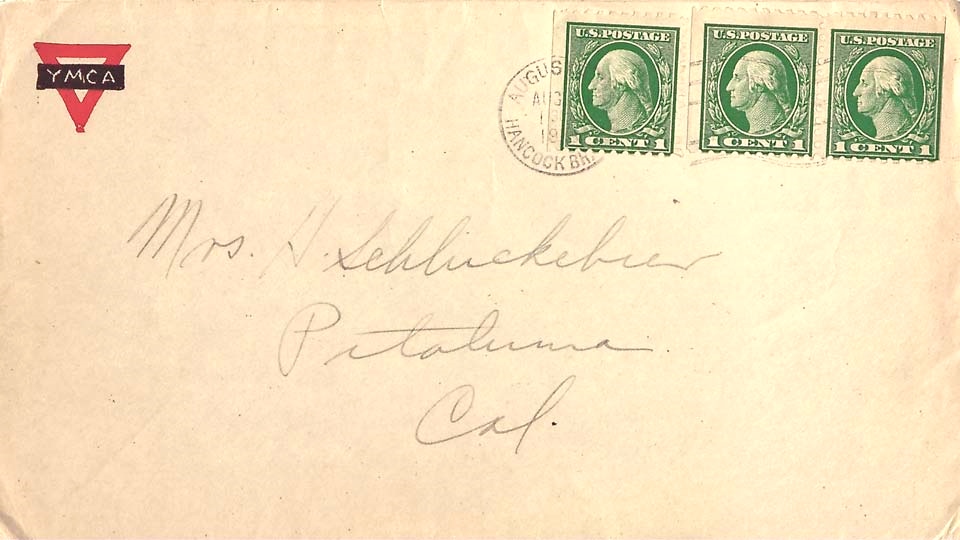 YMCA
AUGUS
AUG
HANCOCK BR.
U.S.POSTAGE
1 CENT 1
U.S.POSTAGE
1 CENT 1
U.S.POSTAGE
1 CENT 1
Mrs. H. Schluckebier
Petaluma
Cal.